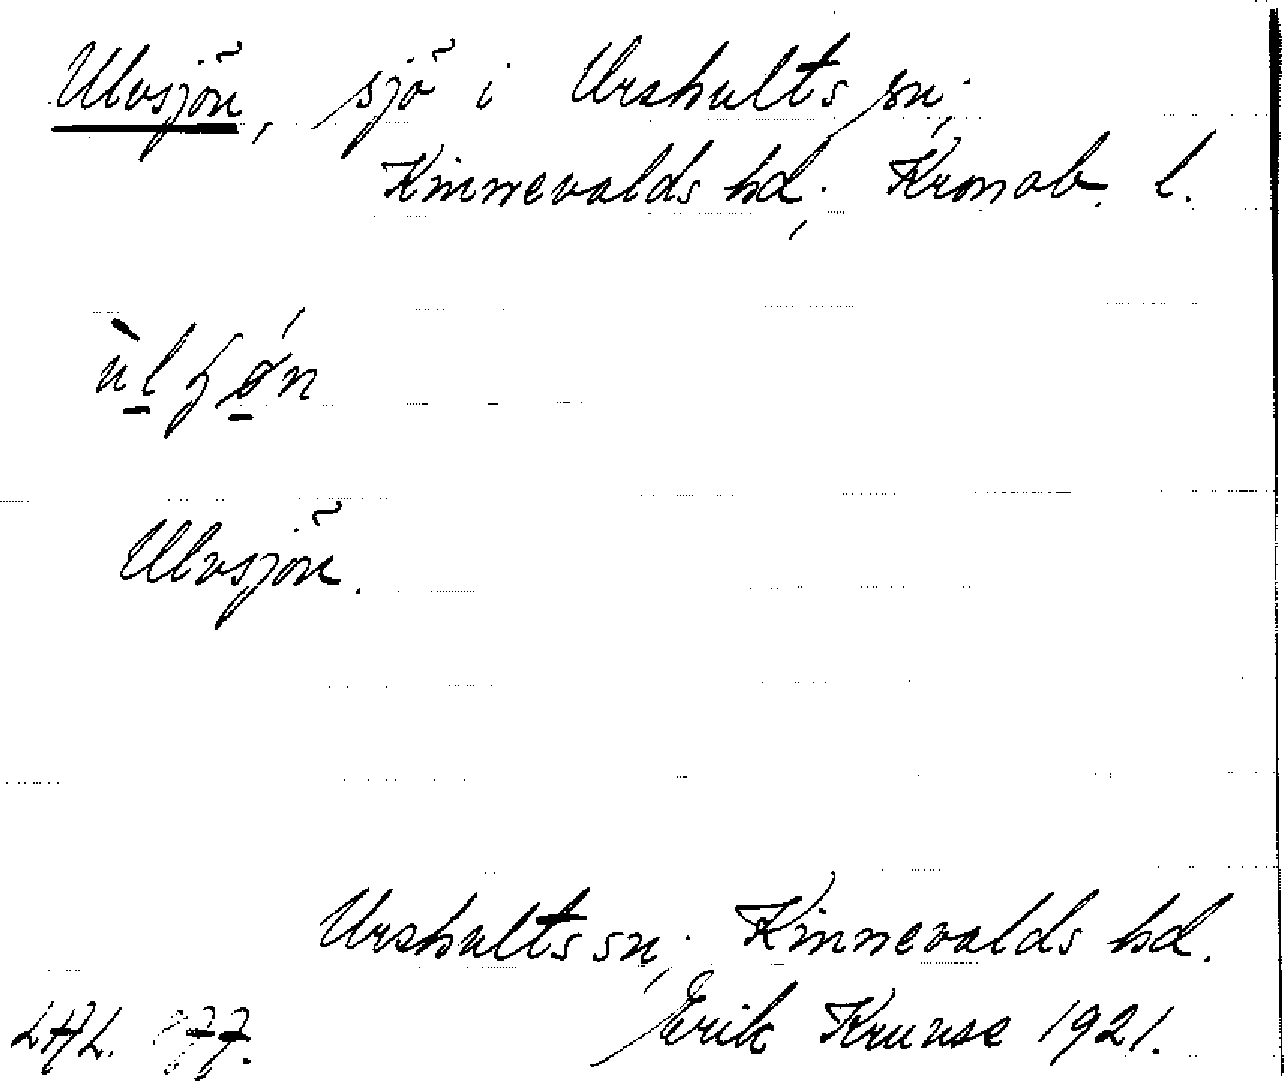 Ulvsjön, sjö i Urshults sn,
Kinnevalds hd, Kronob. l.
Ulvsjön.
Urshults sn, Kinnevalds hd.
Erik Kruuse 1921.